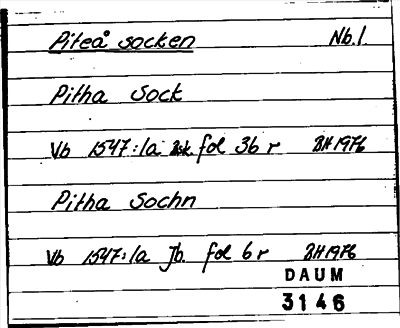 Piteå socken Nb.l.
Pitha Sock
Vb 1547:1a fol 36 r BH 1976
Pitha Sochn
Vb 1547:1a Jb. fol 6 r BH 1976
DAUM
3146